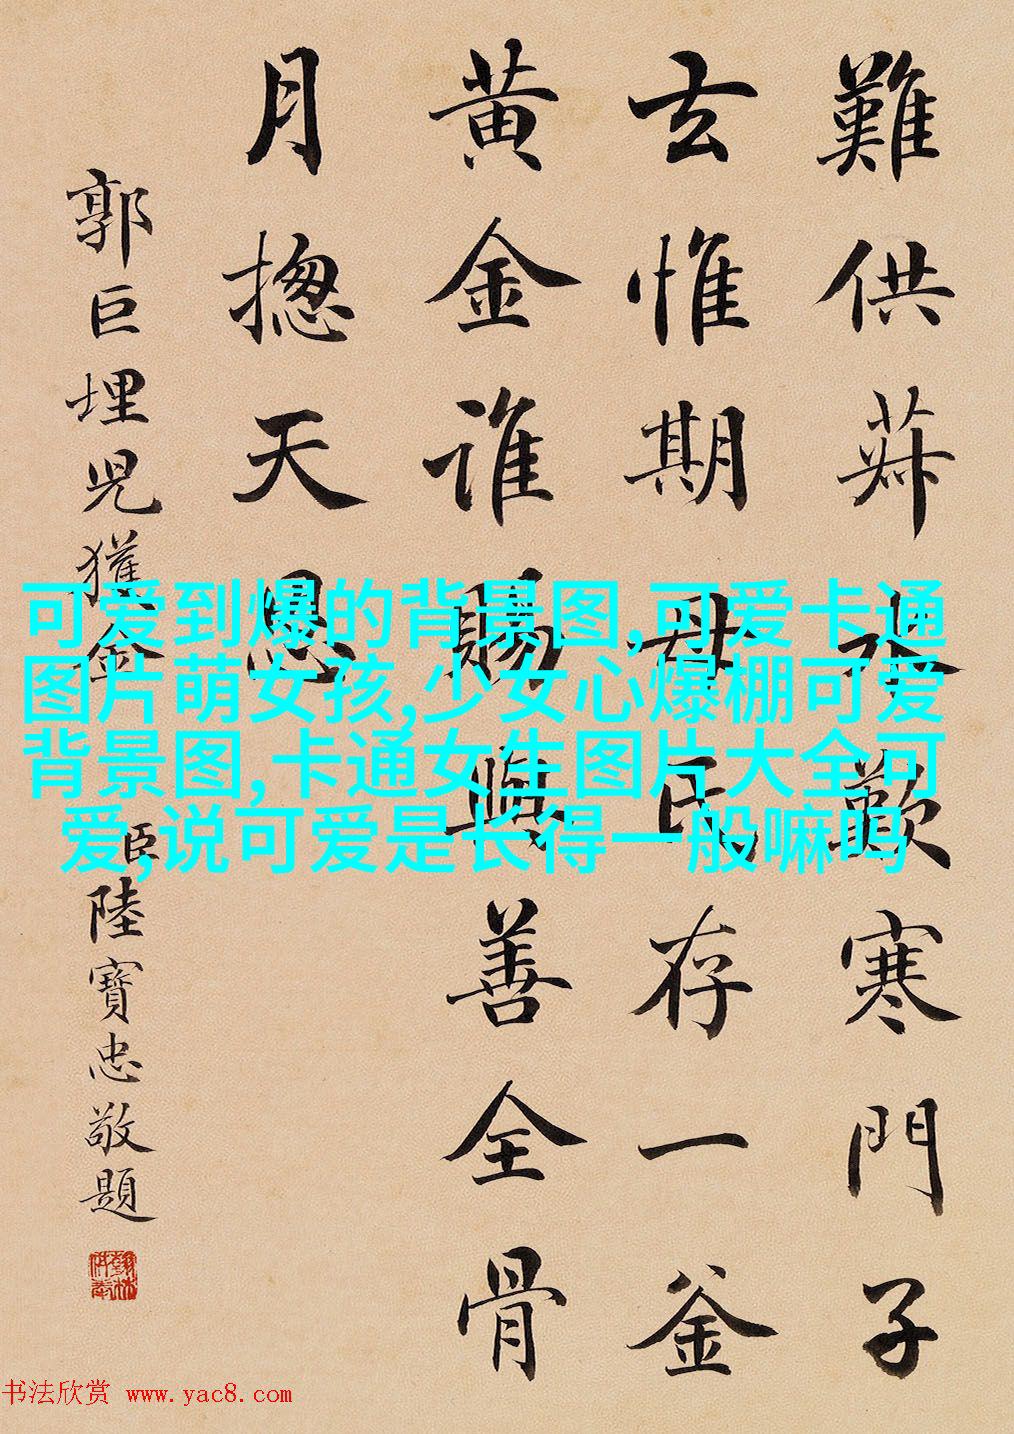 難供菽水歎寒門子
玄惟期母氏存一釜
黄金谁賜與善全骨
月揔天恩
郭巨埋児獲金
臣陸寶忠敬題
翰林供奉
可爱到爆的背景图,可爱卡通
图片萌女孩,少女心爆棚可爱
背景图,卡通女生图片大全可
爱,说可爱是长得一般嘛吗
书法欣赏 www.yac8.com